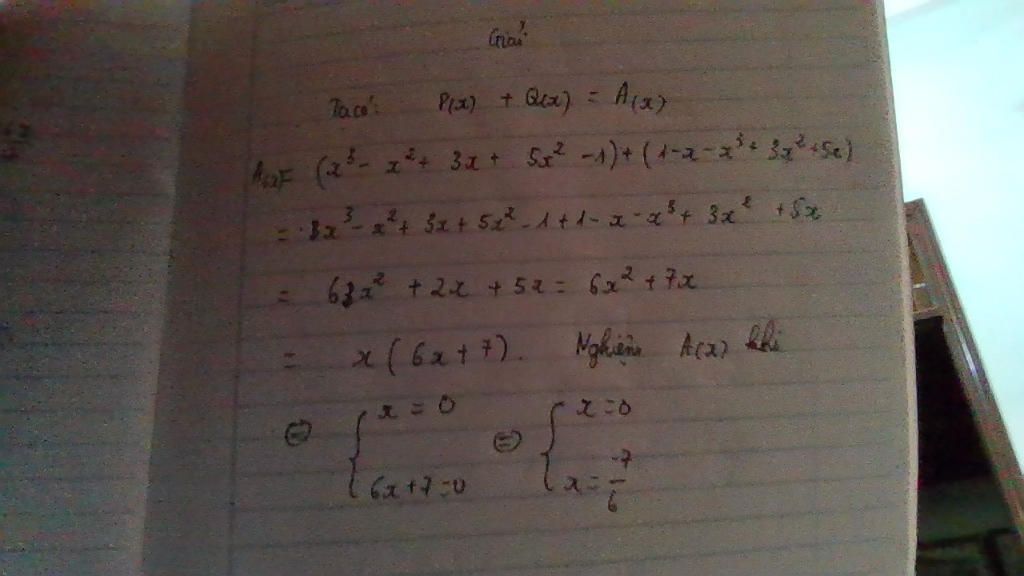 Giải
Ta có: P(x) + Q(x) = A(x)
A(x)= (x³ - x² + 3x + 5x² - 1) + (1 - x - x³ + 3x² + 5x)
= 3x³ - x² + 3x + 5x² - 1 + 1 - x - x³ + 3x² + 5x
= 6x² + 2x + 5x = 6x² + 7x
= x(6x + 7). Nghiệm A(x) khi
⇔ { x = 0 ⇔ { x = 0
6x + 7 = 0 x = -7/6